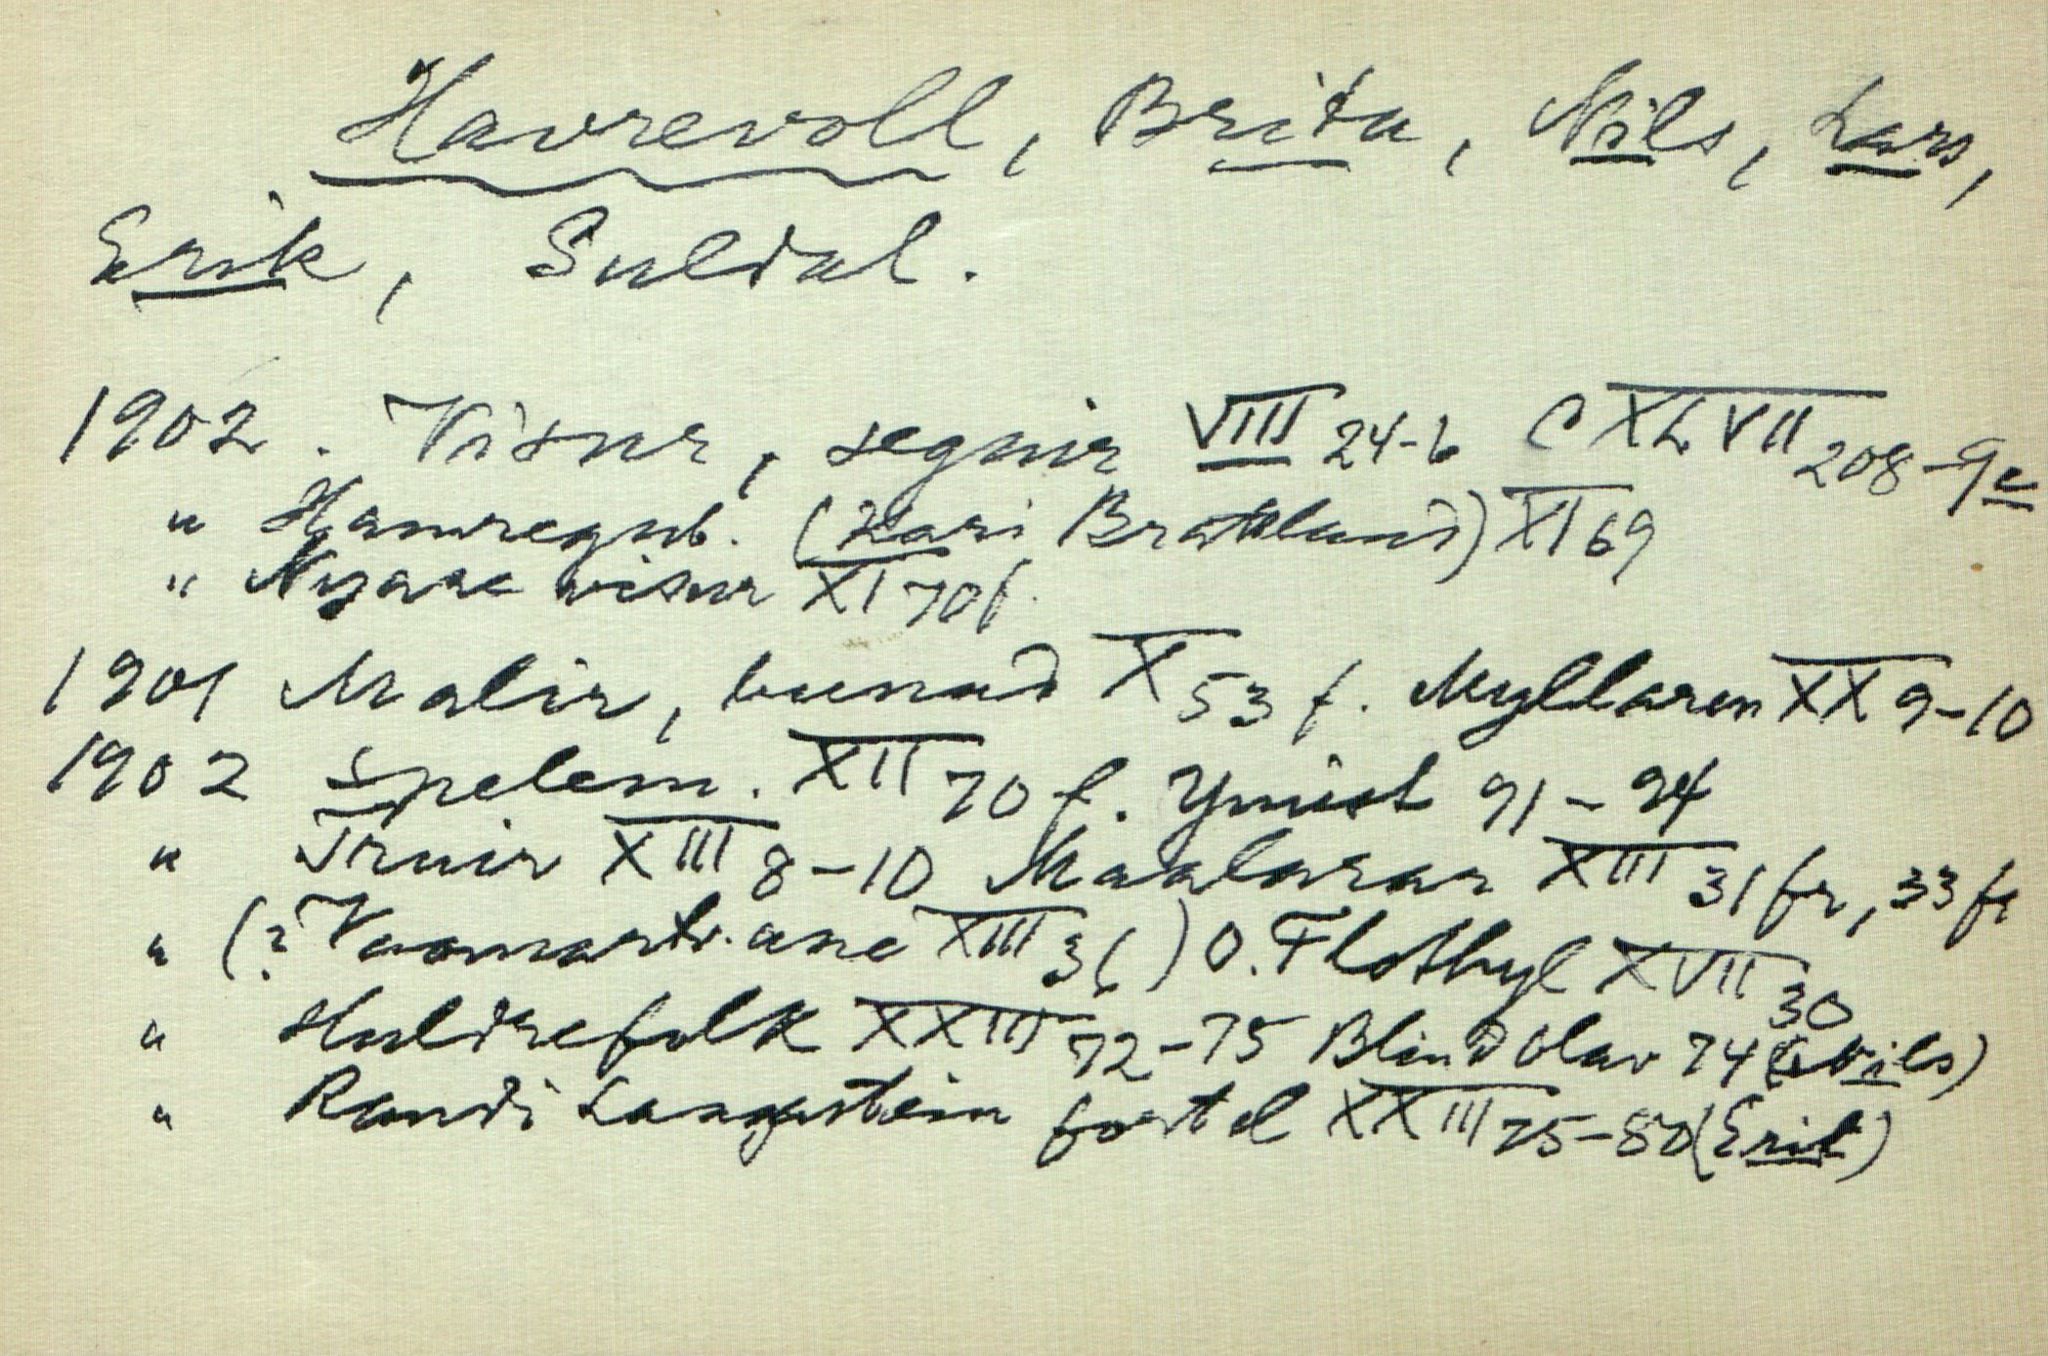 Havrevoll, Brita, Nils, Lars,
Erik, Suldal.
1902. Visur, segnir VIII 24-6 CXLVII 208-9e
" Haovregub. (Kari Bratteland) XI 69
" Nyare visur XI 70f.
1901 Malir, bunad X 53 f. Myllaren XX 9-10
1902 Spelem. XII 70 f. Ymist 91-94
" Truir XIII 8-10 Maalarar XIII 31 fr, 33 fr
" (? ane XIII 36) O. Flothyl XVII 30
" Huldrefolk XXIII 72-75 Blind Olav 74 (Nils)
" Randi Langstein fortel XXIII 75-80 (Erik)